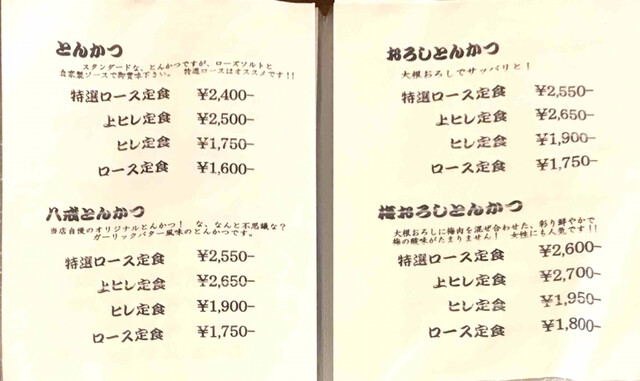 とんかつ
スタンダードな、とんかつですが、ローズソルトと
自家製ソースで御賞味下さい。 特選ロースはオススメです!!
特選ロース定食 ¥2,400-
上ヒレ定食 ¥2,500-
ヒレ定食 ¥1,750-
ロース定食 ¥1,600-
八戒とんかつ
当店自慢のオリジナルとんかつ! な、なんと不思議な?
ガーリックバター風味のとんかつです。
特選ロース定食 ¥2,550-
上ヒレ定食 ¥2,650-
ヒレ定食 ¥1,900-
ロース定食 ¥1,750-
おろしとんかつ
大根おろしでサッパリと!
特選ロース定食 ¥2,550-
上ヒレ定食 ¥2,650-
ヒレ定食 ¥1,900-
ロース定食 ¥1,750-
梅おろしとんかつ
大根おろしに梅肉を混ぜ合わせた、彩り鮮やかで
梅の酸味がたまりません! 女性にも人気です!!
特選ロース定食 ¥2,600-
上ヒレ定食 ¥2,700-
ヒレ定食 ¥1,950-
ロース定食 ¥1,800-